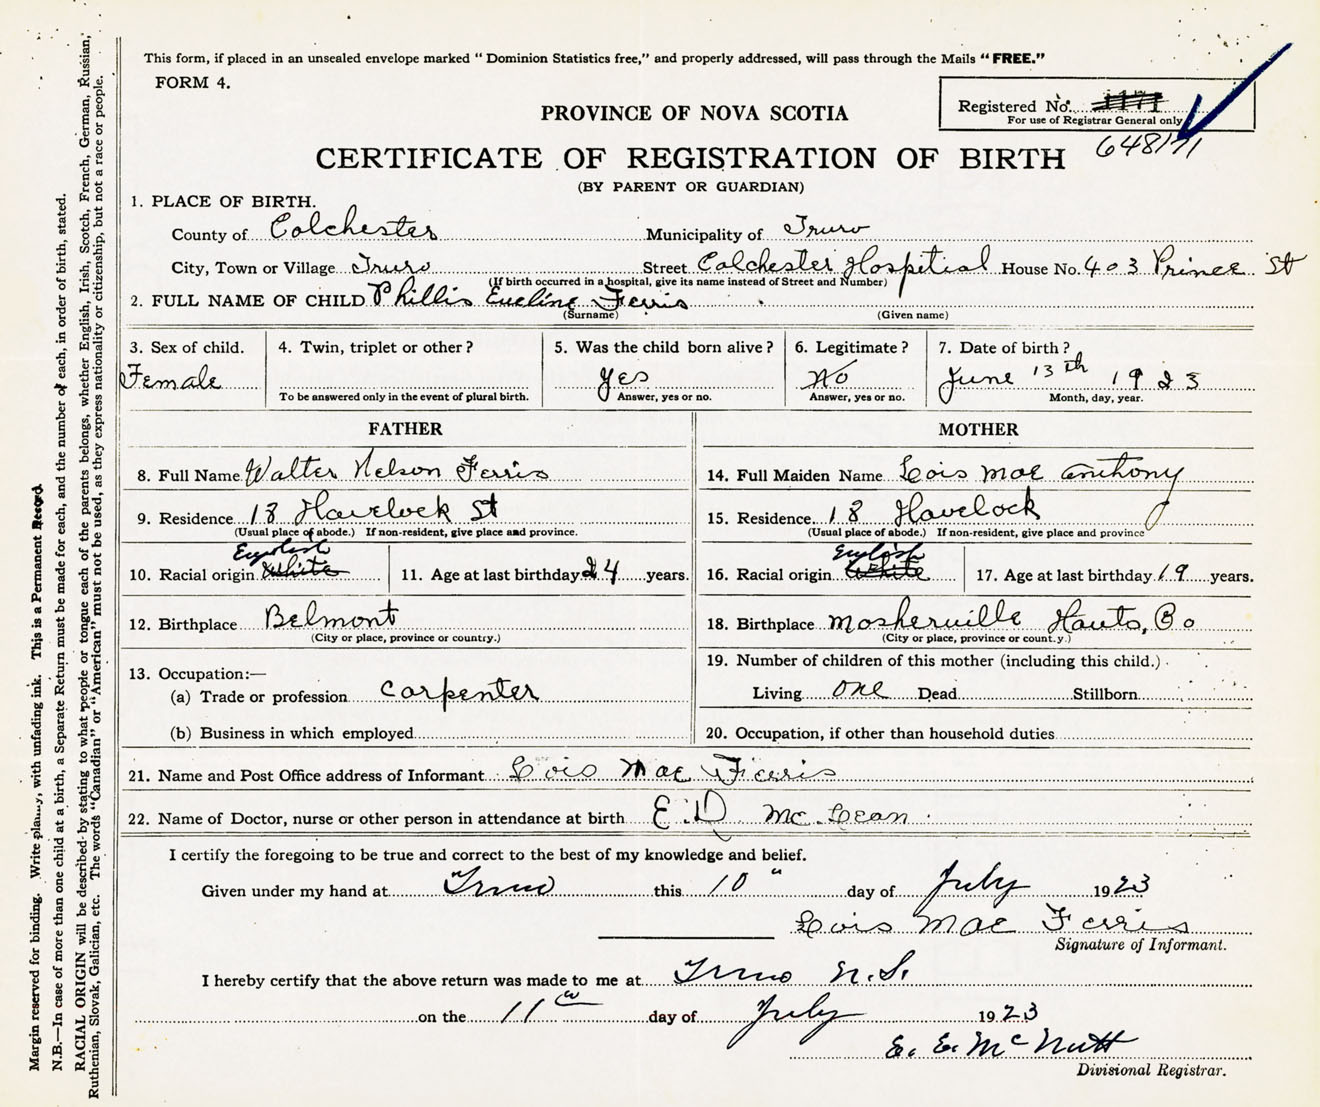 This form, if placed in an unsealed envelope marked “ Dominion Statistics free,” and properly addressed, will pass through the Mails “ FREE.”
FORM 4.
Registered No.
For use of Registrar General only
648171
PROVINCE OF NOVA SCOTIA
CERTIFICATE OF REGISTRATION OF BIRTH
(BY PARENT OR GUARDIAN)
1. PLACE OF BIRTH.
County of Colchester Municipality of Truro
City, Town or Village Truro Street Colchester Hospitial House No. 403 Prince St
(If birth occurred in a hospital, give its name instead of Street and Number)
2. FULL NAME OF CHILD Phillis Eveline Ferris
(Surname) (Given name)
3. Sex of child. 4. Twin, triplet or other? 5. Was the child born alive? 6. Legitimate? 7. Date of birth?
Female Yes No June 13th 1923
To be answered only in the event of plural birth. Answer, yes or no. Answer, yes or no. Month, day, year.
FATHER MOTHER
8. Full Name Walter Nelson Ferris 14. Full Maiden Name Lois Mae Anthony
9. Residence 18 Havelock St 15. Residence 18 Havelock
(Usual place of abode.) If non-resident, give place and province. (Usual place of abode.) If non-resident, give place and province
English English
10. Racial origin White 11. Age at last birthday 24 years. 16. Racial origin White 17. Age at last birthday 19 years.
12. Birthplace Belmont 18. Birthplace Mosherville Hants, Co
(City or place, province or country.) (City or place, province or country.)
13. Occupation:— 19. Number of children of this mother (including this child.)
(a) Trade or profession carpenter Living one Dead Stillborn
(b) Business in which employed 20. Occupation, if other than household duties
21. Name and Post Office address of Informant Lois Mae Ferris
22. Name of Doctor, nurse or other person in attendance at birth E. D McLean
I certify the foregoing to be true and correct to the best of my knowledge and belief.
Given under my hand at Truro this 10" day of July 1923
Lois Mae Ferris
Signature of Informant.
I hereby certify that the above return was made to me at Truro N.S.
on the 11 day of July 1923
E. E. McNutt
Divisional Registrar.
Margin reserved for binding. Write plainly, with unfading ink. This is a Permanent Record.
N.B.—In case of more than one child at a birth, a Separate Return must be made for each, and the number of each, in order of birth, stated.
RACIAL ORIGIN will be described by stating to what people or tongue each of the parents belongs, whether English, Irish, Scotch, French, German, Russian,
Ruthenian, Slovak, Galician, etc. The words “Canadian” or “American” must not be used, as they express nationality or citizenship, but not a race or people.